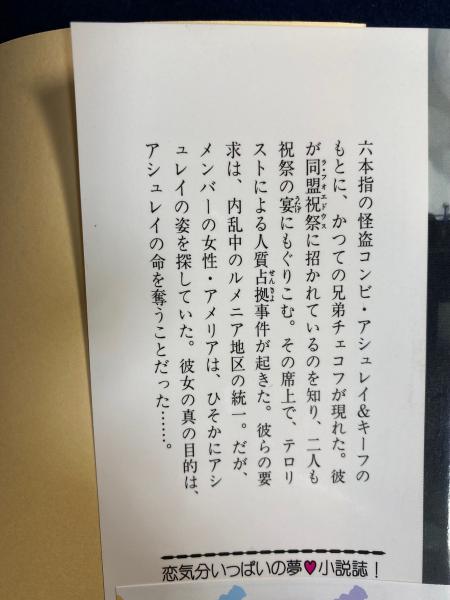 六本指の怪盗コンビ・アシュレイ&キーフの
もとに、かつての兄弟チェコフが現れた。彼
が同盟祝祭に招かれているのを知り、二人も
ラ・フォエドウス
祝祭の宴にもぐりこむ。その席上で、テロリ
うたげ
ストによる人質占拠事件が起きた。彼らの要
せんきょ
求は、内乱中のルメニア地区の統一。だが、
メンバーの女性・アメリアは、ひそかにアシ
ュレイの姿を探していた。彼女の真の目的は、
アシュレイの命を奪うことだった……。
恋気分いっぱいの夢♥小説誌!